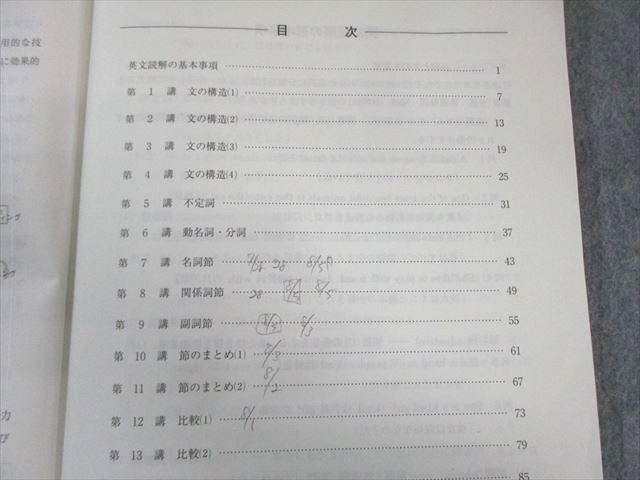 用的な技
に効果的
目 次
英文読解の基本事項 …… 1
第 1 講 文の構造(1) …… 7
第 2 講 文の構造(2) …… 13
第 3 講 文の構造(3) …… 19
第 4 講 文の構造(4) …… 25
第 5 講 不定詞 …… 31
第 6 講 動名詞・分詞 …… 37
第 7 講 名詞節 28 …… 43
第 8 講 関係詞節 28 8/5 …… 49
第 9 講 副詞節 8/3 …… 55
第 10 講 節のまとめ(1) …… 61
第 11 講 節のまとめ(2) 8/2 …… 67
第 12 講 比較(1) 8/1 …… 73
第 13 講 比較(2) …… 79
85
力
び